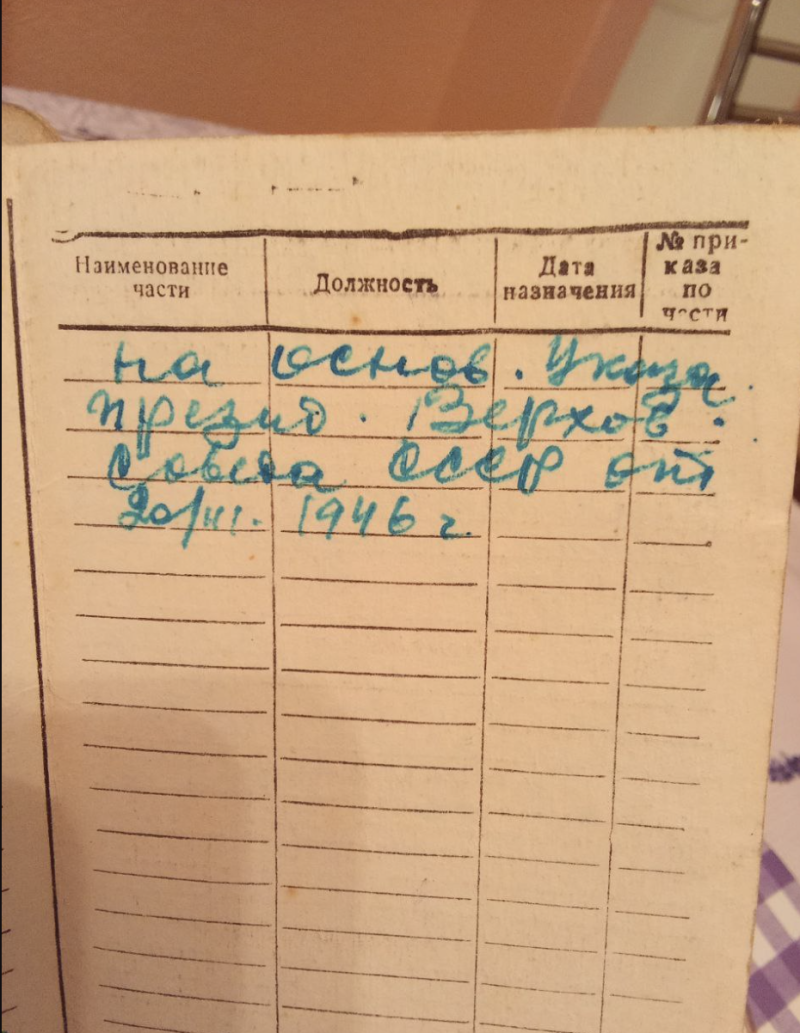 Наименование части
Должность
Дата назначения
№ при-
каза
по
части
на основ. Указа
през­ид. Верхов.
Совета СССР от
20/III. 1946 г.